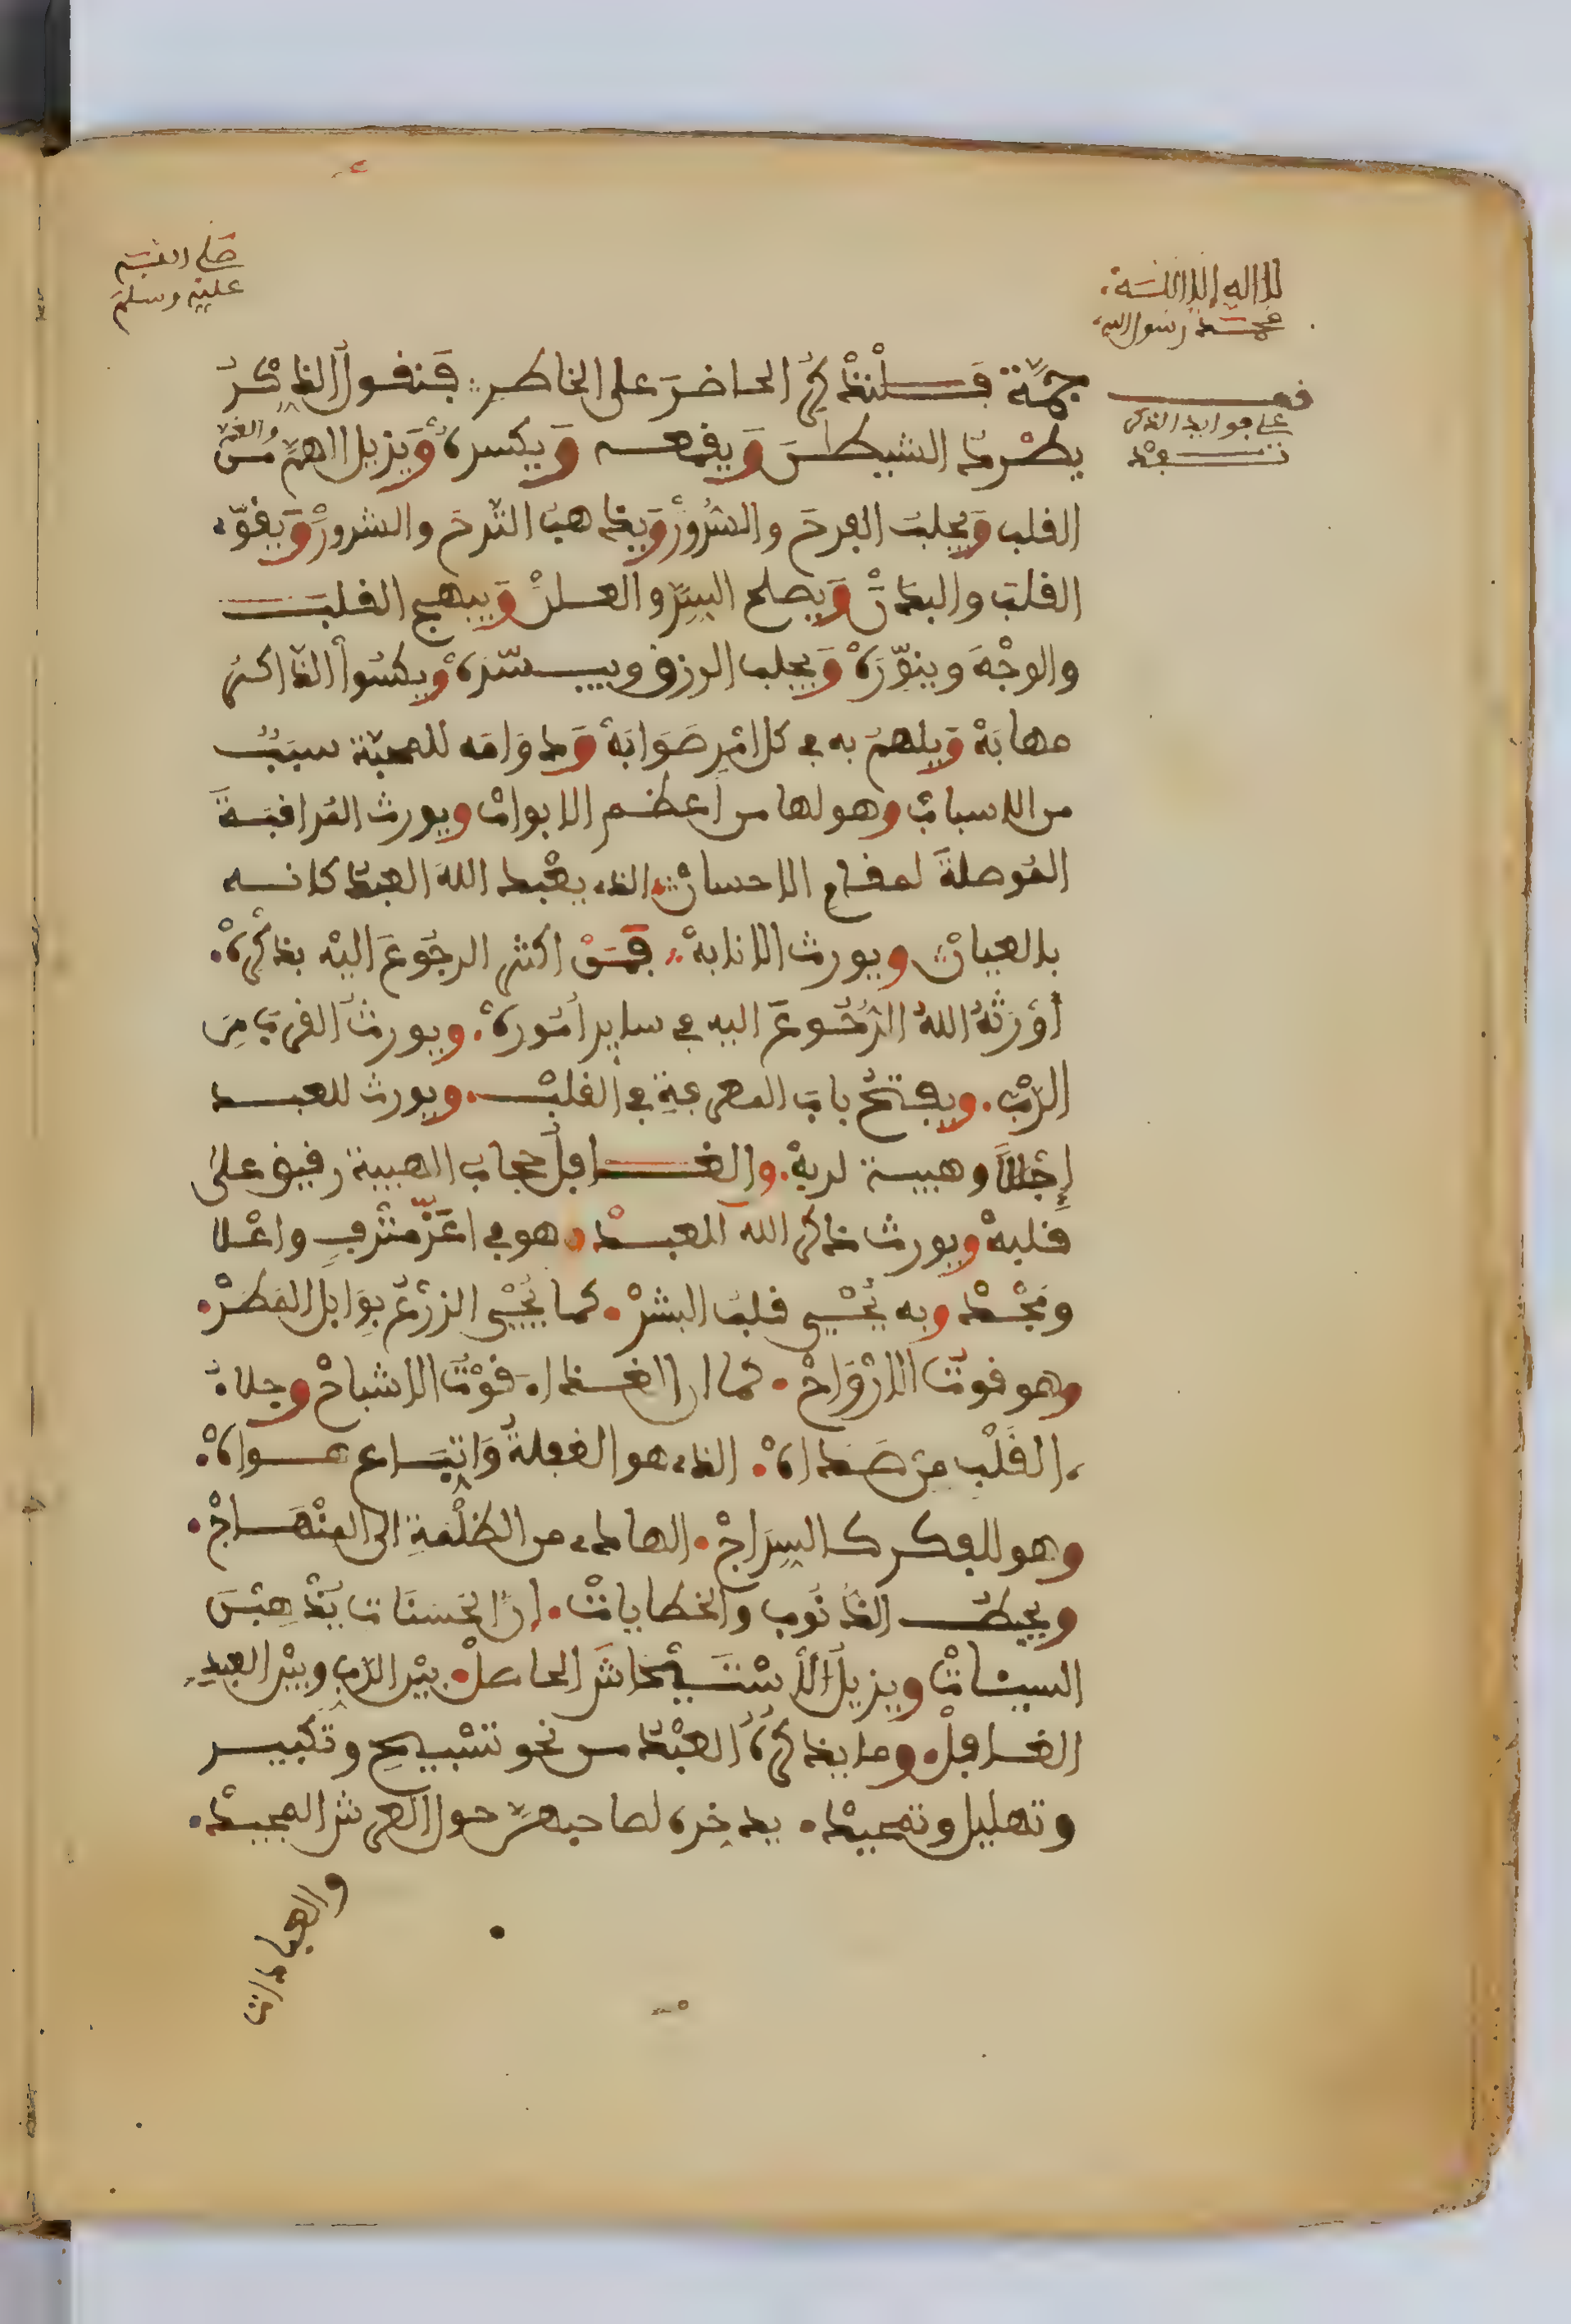 لا اله إلا الله
محمد رسول الله
صلى الله
عليه وسلم
قف
على فوايد الذكر
تسعد
جمة فلنذكر الحاضر على الخاطر فنقول الذكر
يطرد الشيطن ويقمعه ويكسره ويزيل الهم والغم من
القلب ويجلب الفرح والسرور ويذهب الترح والشرور ويقوي
القلب والبدن ويصلح السر والعلن ويبهج القلب
والوجه وينوره ويجلب الرزق وييسره ويكسوا الذاكر
مهابة ويلهم به في كل امر صوابه ودوامه للمحبة سبب
من الاسباب وهو لها من أعظم الابواب ويورث المراقبة
الموصلة لمقام الاحسان الذي يعبد الله العبد كانه
بالعيان ويورث الانابة فمن اكثر الرجوع اليه بذكره
أورثه الله الرجوع اليه في ساير أموره ويورث القرب من
الرب ويفتح باب المعرفة في القلب ويورث للعبد
إجلالا وهيبة لربه والغافل حجاب الهيبة رقيق على
قلبه ويورث ذكر الله العبد وهو في اعز شرف واعلا
ومجد وبه يحيى قلب البشر كما يحيى الزرع بوابل المطر
وهو قوت الارواح كما ان الغذاء قوت الاشباح وجلاء
القلب من صداه الذي هو الغفلة واتباع هواه
وهو للفكر كالسراج الهادي من الظلمة الى المنهاج
ويحيط الذنوب والخطايات إن الحسنات يذهبن
السيئات ويزيل الاستيحاش الحاصل بين الرب وبين العبد
الغافل وما يذكره العبد من نحو تسبيح وتكبير
وتهليل وتمجيد يدخره لصاحبه حول العرش المجيد
والعبادات